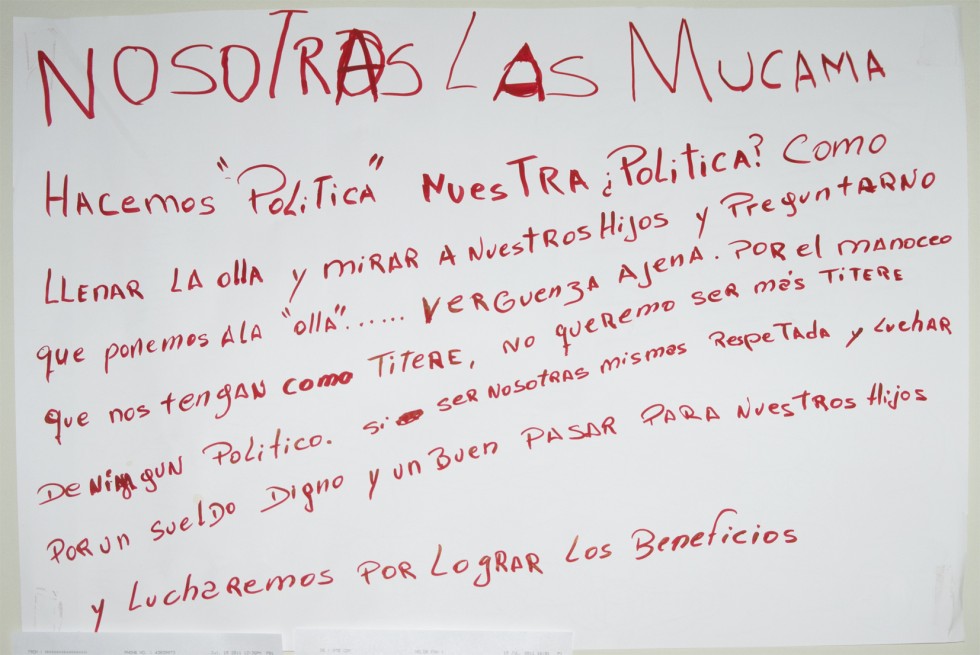 NOSOTRAS LAS MUCAMA
HACEMOS "POLITICA" NUESTRA ¿POLITICA? COMO
LLENAR LA OllA y MIRAR A NUESTROS HIJOS y PREGUNTARNO
que ponemos ALA "OllA"...... VERGUENZA AJENA. POR el MANOCEO
que nos tengAN como TITERE, NO queremo SER más TITERE
DE NINGUN POLITICO. si SER NOSOTRAS mismas RespeTADA y LuchAR
POR UN SUELDO DIGNO y un BUEN PASAR PARA NUESTROS Hijos
y LUCHAREMOS POR LOGRAR LOS BENEFICIOS